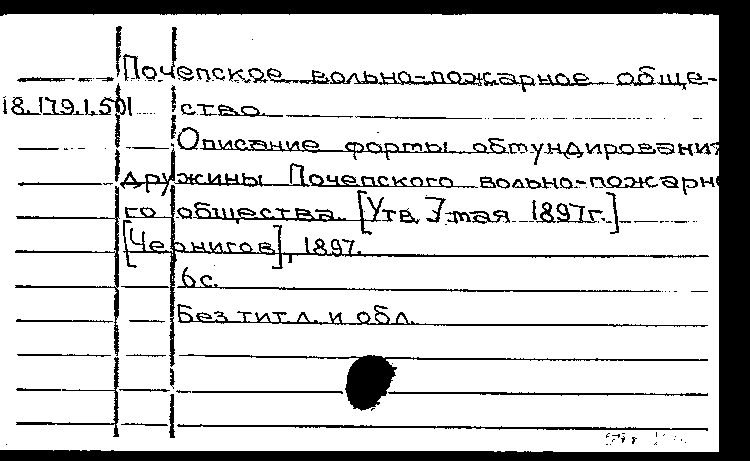 Почепское вольно-пожарное обще-
18.179.1.501 ство.
Описание формы обмундирования
дружины Почепского вольно-пожарно
го общества. [Утв. 7 мая 1897г.]
[Чернигов], 1897.
6 с.
Без тит. л. и обл.